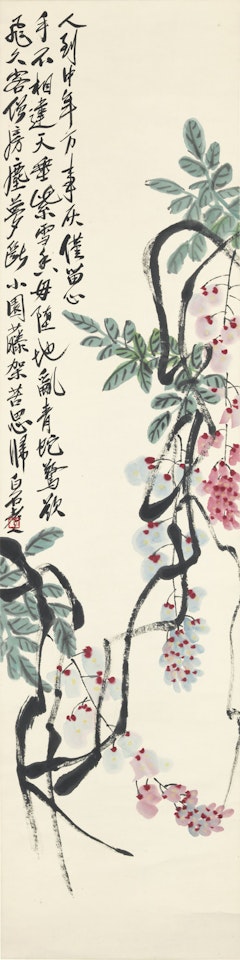 人到中年万事灰僅留心
手不相違天垂紫雪隨地亂青蛇驚欲
飛久客僧房塵夢斷小園藤架苦思歸白石